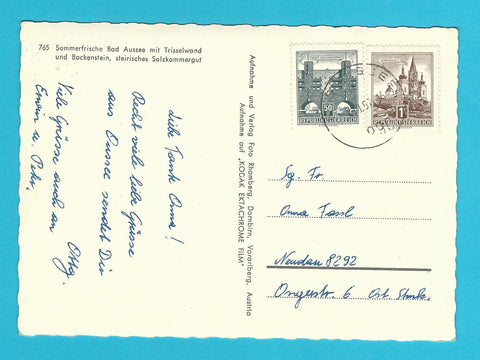 765 Sommerfrische Bad Aussee mit Trisselwand
und Backenstein, steirisches Salzkammergut
Liebe Tante Anna!
Recht viele liebe Grüsse
aus Aussee sendet Dir
Ottg.
Viele Grüsse auch an
Erwin u. Peter.
Aufnahme und Verlag Foto Rhomberg, Dornbirn, Vorarlberg, Austria
Aufnahme auf „KODAK EKTACHROME FILM"
50
REPUBLIK ÖSTERREICH
1S
REPUBLIK ÖSTERREICH
Sg. Fr.
Anna Fassl
Neudau 8292
6 Ost. Stmk.